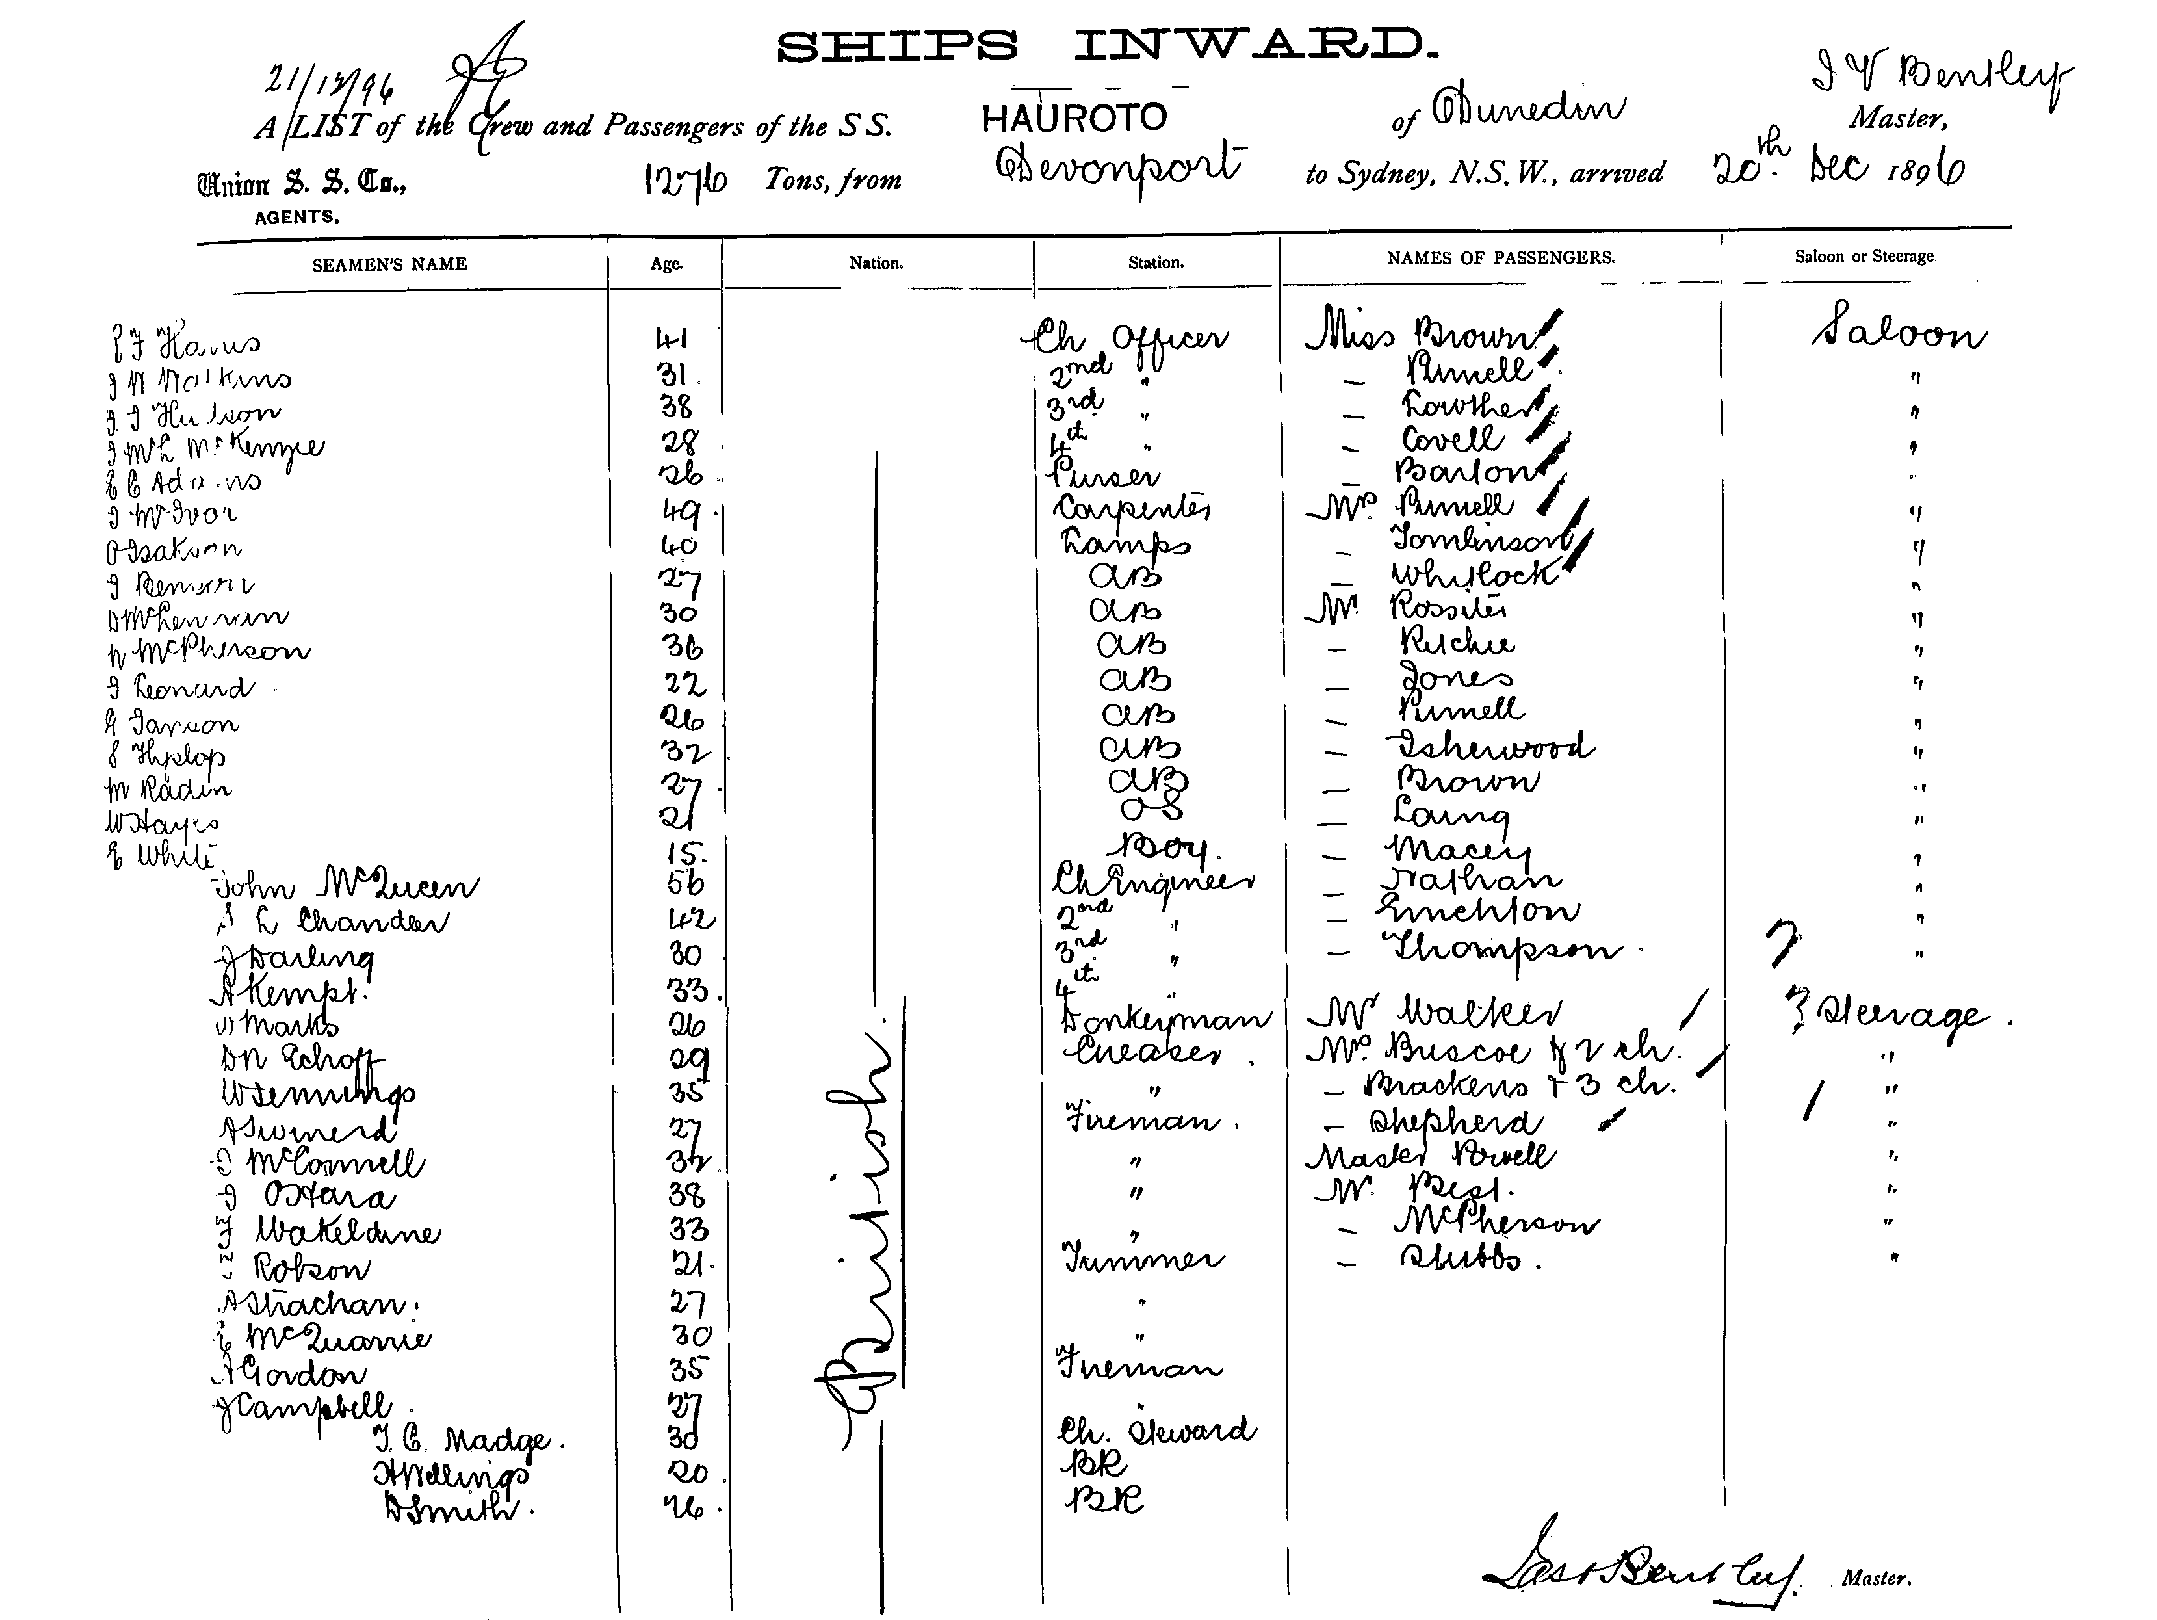 SHIPS INWARD.
21/12/96
A LIST of the Crew and Passengers of the SS. HAUROTO of Dunedin J V Bentley Master,
Union S. S. Co., AGENTS. 1276 Tons, from Devonport to Sydney, N.S.W., arrived 20th. Dec 1896
SEAMEN'S NAME Age. Nation. Station. NAMES OF PASSENGERS. Saloon or Steerage
41 Ch Officer Miss Brown Saloon
31. 2nd " — Pumell "
38 3rd " — Lowther "
McKenzie 28 4th " — Covell "
26 Purser — Barton
J McIvor 49 Carpenter Mrs. Pumell "
O Isakson 40 Lamps — Tomlinson "
27 AB — Whitlock "
30 AB Mr Rossiter "
N McPherson 36 AB — Ritchie "
J Leonard 22 AB — Jones "
26 AB — Pumell "
S Hyslop 32 AB — Isherwood "
M Radin 27 AB — Brown "
W Hayes 21 OS — Laing "
E White 15. Boy. — Macey "
John McQueen 56 Ch Engineer — Nathan "
L Chandler 42 2nd " — "
J Darling 30 3rd " — Thompson "
A Kempt. 33. 4th "
Marks 26 Donkeyman Mr Walker Steerage.
29 Greaser. Mrs. Briscoe & 2 ch. "
W Jennings 35 " — Brackens + 3 ch. "
27 Fireman. — Shepherd "
McConnell 32 " Master Powell "
J O'Hara 38 " Mr. Best. "
F Wakeldine 33 " — McPherson "
Robson 21. Trimmer — Stubbs. "
A Strachan. 27 "
McQuarrie 30 "
A Gordon 35 Fireman
J Campbell 27 "
T. C. Madge. 30 Ch. Steward
H Wellings 20 BR
D Smith. 26 BR
British
Jas V Bentley. Master.